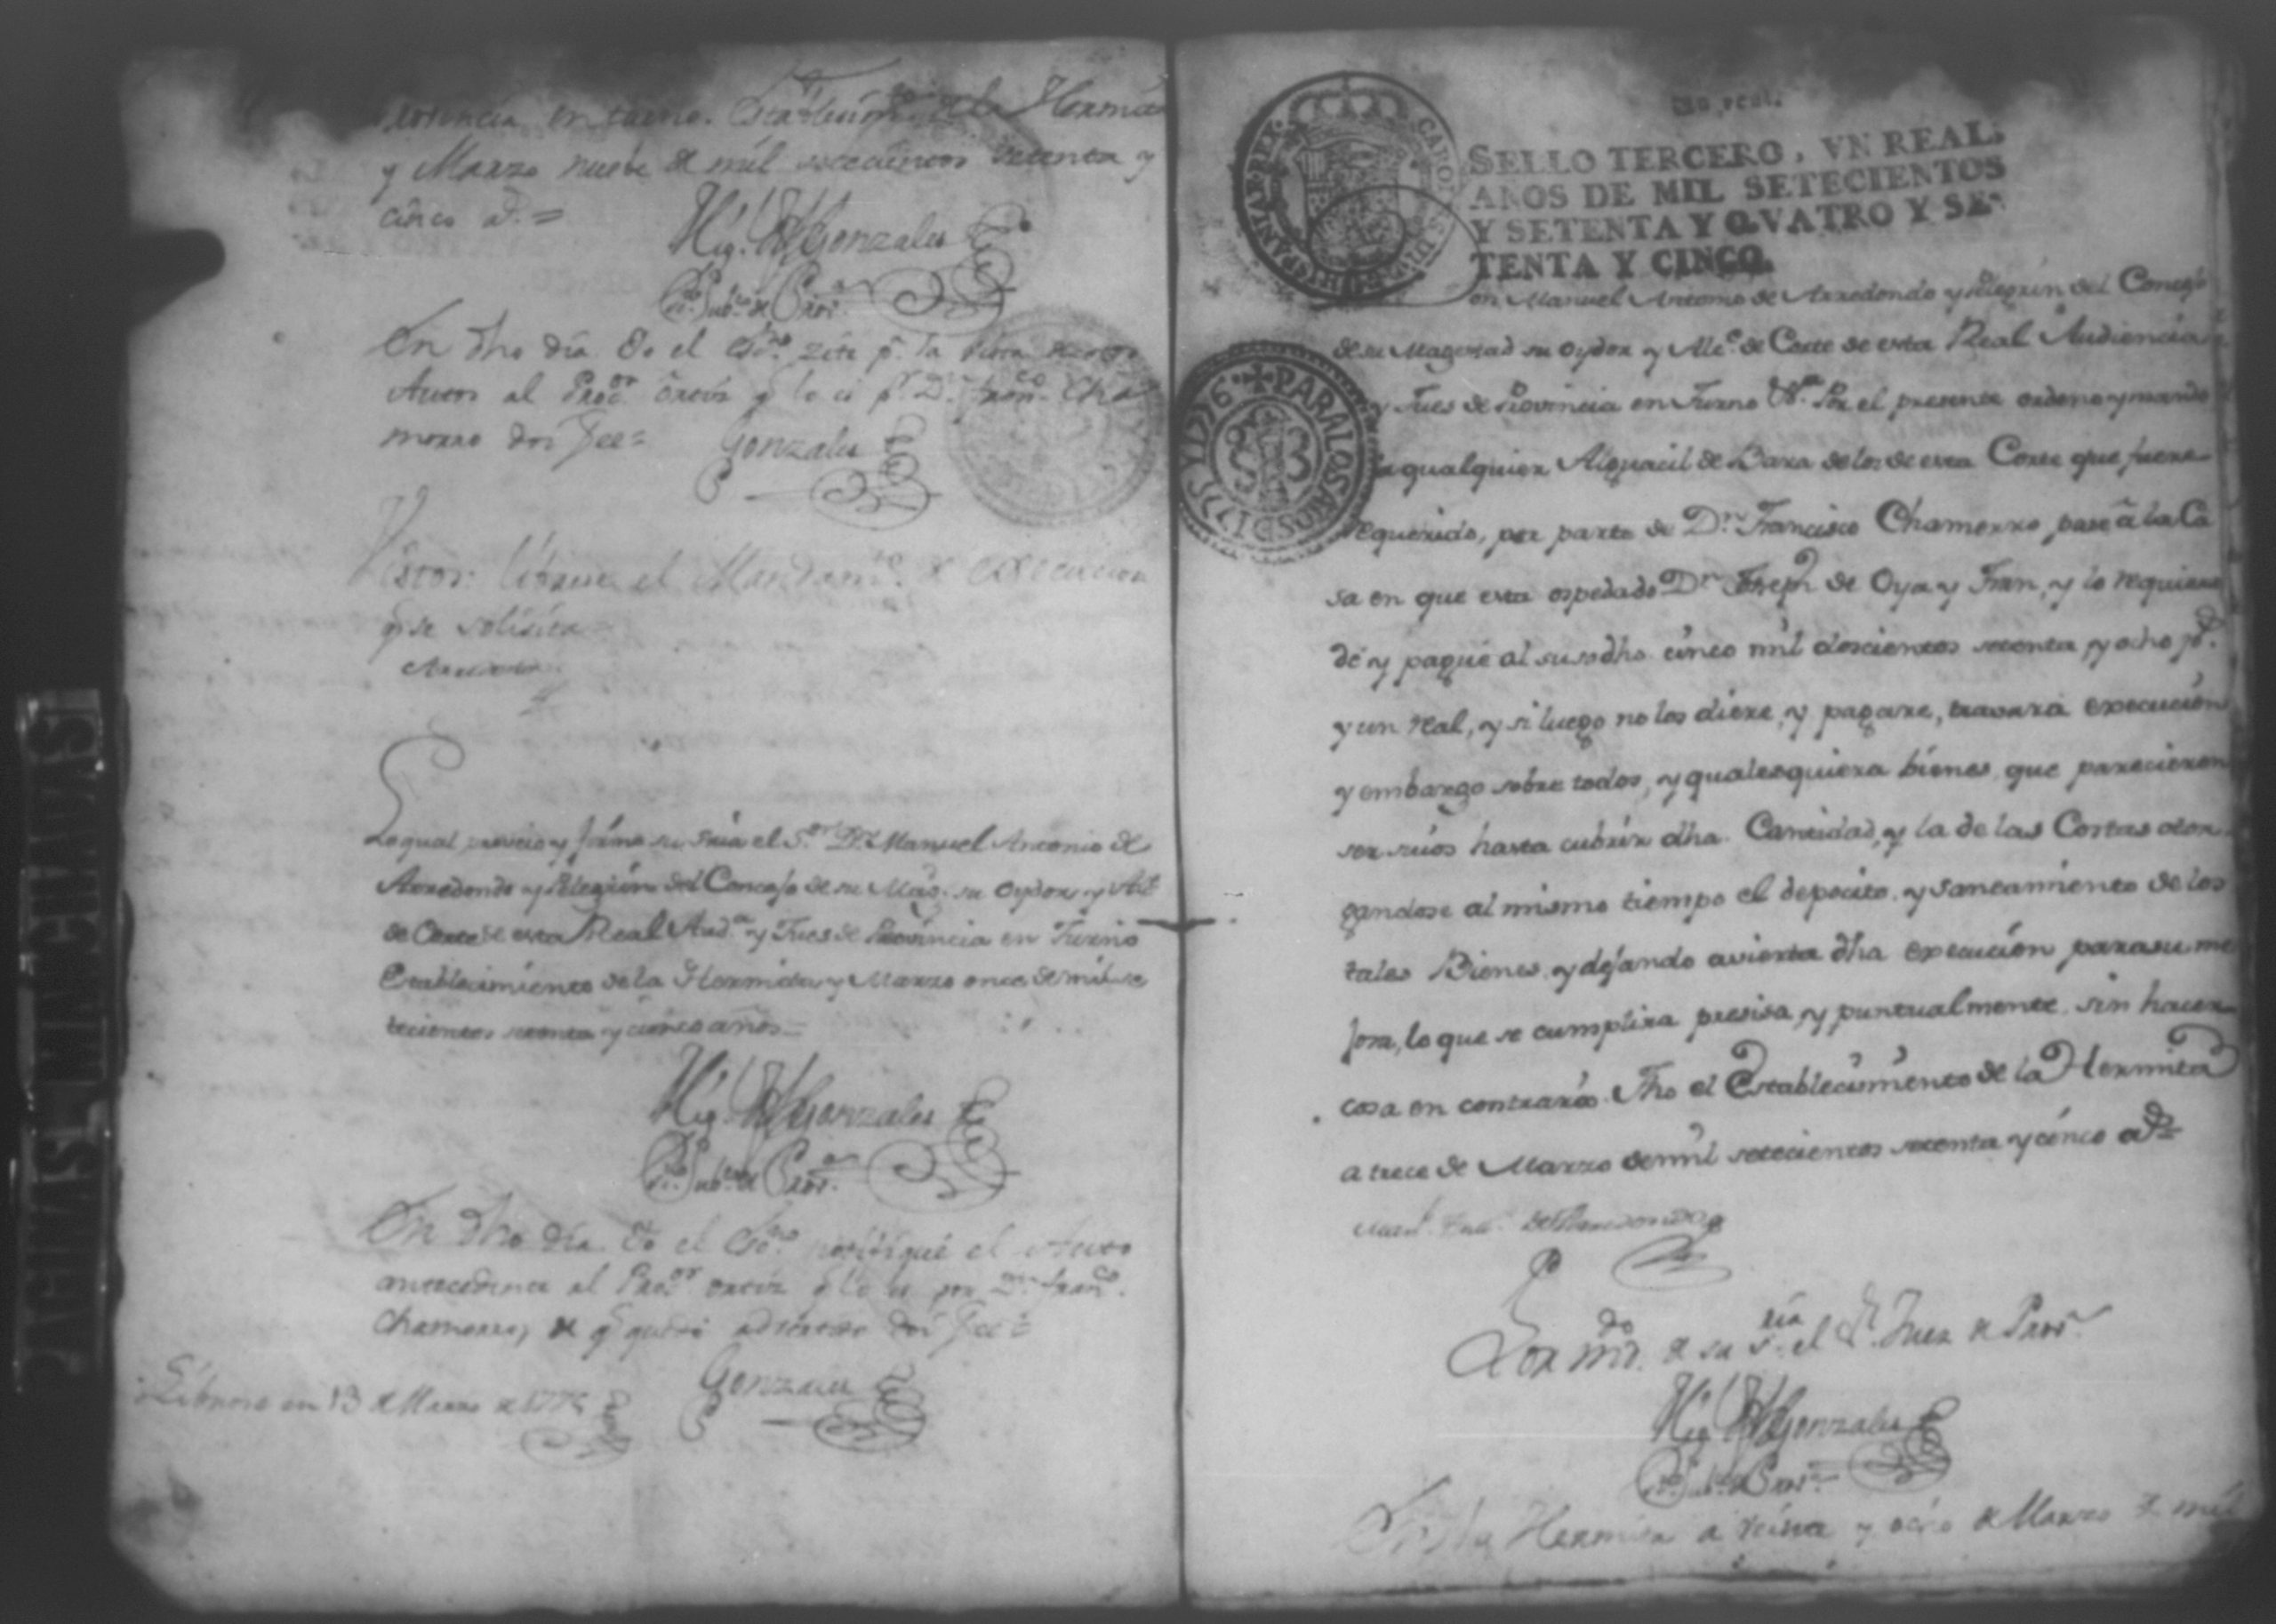 en turno. Establecim.to de la Hermita
y Marzo nuebe de mil setecientos setenta y
cinco a.s =
Mig. Gonzales
Es.no Pub.co de Prov.a
En dho dia Yo el Es.no zite p.a la vista de estos
Autos al Proc.or Ortiz q lo es p.r D.n Fran.co Cha
morro doi fee=
Gonzales
Vistos: librese el Mandam.to de execucion
q se solisita
Lo qual proveio y firmo su Sria el S.or D.n Manuel Antonio de
Arredondo y Pelegrin del Concejo de su Mag. su Oydor y Alc.e
de Corte de esta Real Aud.a y Jues de Provincia en Turno
Establecimiento de la Hermita y Marzo once de mil se
tecientos setenta y cinco años=
Mig. Gonzales
Es.no Pub.co de Prov.a
En dho dia Yo el Es.no notifiqué el Auto
antecedente al Proc.or Ortiz q lo es por D.n Fran.co
Chamorro, de q quedó adbertido doi fee=
Gonzales
Librose en 13 de Marzo de 1775
Un real.
CAROLUS D HISPANIAR REX
SELLO TERCERO, VN REAL,
AÑOS DE MIL SETECIENTOS
Y SETENTA Y QVATRO Y SE-
TENTA Y CINCO.
PARA LOS AÑOS DE 1775 Y 1776
on Manuel Antonio de Arredondo y Pelegrin del Concejo
de su Magestad su Oydor y Alc.e de Corte de esta Real Audiencia
y Jues de Provincia en Turno &.a Por el presente ordeno y mando
a qualquier Alguacil de Bara de los de esta Corte que fuere
requerido, por parte de D.n Francisco Chamorro, pase â la Ca
sa en que esta ospedado D.n Joseph de Oya y Fran, y lo requiera
dé y pague al susodho cinco mil doscientos setenta y ocho p.s
y un real, y si luego no los diere, y pagare, travará execución
y embargo sobre todos, y qualesquiera bienes, que parecieren
ser suios hasta cubrir dha Cantidad, y la de las Costas otor
gandose al mismo tiempo el deposito, y saneamiento de los
tales Bienes, y dejando avierta dha execución para su me
jora, lo que se cumplira presisa, y puntualmente sin hacer
cosa en contrario. Fho el Establecimiento de la Hermita
a trece de Marzo de mil setecientos setenta y cinco a.s=
Man.l Ant.o de Arredondo
Por m.do de su S.ria el S.r Juez de Prov.a
Mig. Gonzales
Es.no Pub.co de Prov.a
En la Hermita a veinte y ocho de Marzo de mil